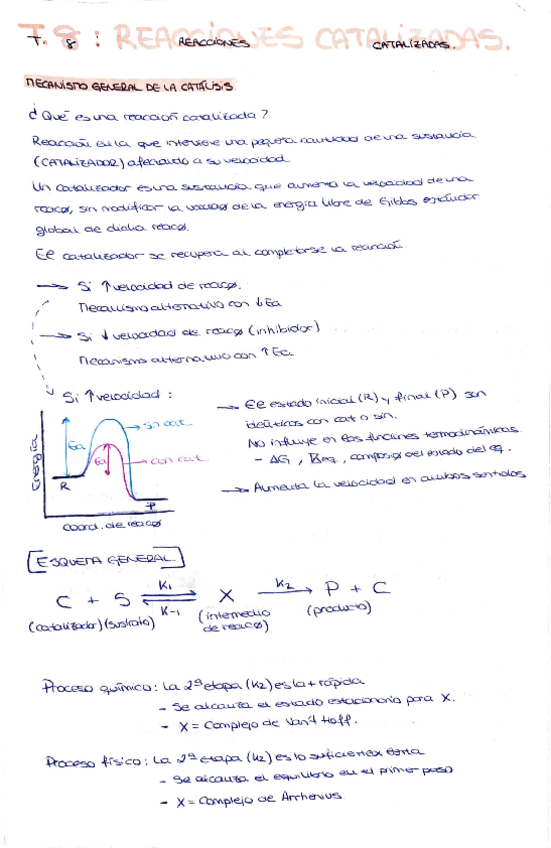 T. 8 : REACCIONES CATALIZADAS.
MECANISMO GENERAL DE LA CATÁLISIS.
¿Qué es una reacción catalizada?
Reacción en la que interviene una pequeña cantidad de una sustancia
(CATALIZADOR) afectando a su velocidad.
Un catalizador es una sustancia que aumenta la velocidad de una
reacø, sin modificar la variaø de la energía libre de Gibbs estándar
global de dicha reacø.
El catalizador se recupera al completarse la reacción.
→ Si ↑ velocidad de reacø.
Mecanismo alternativo con ↓ Ea
→ Si ↓ velocidad de reacø (inhibidor)
Mecanismo alternativo con ↑ Ea
Si ↑ velocidad :
Energía
Ea
Ea
→ sin cat.
→ con cat.
R
P
Coord. de reacø
→ El estado inicial (R) y final (P) son
idénticos con cat o sin.
No influye en las funciones termodinámicas.
- ΔG, Keq, composiø del estado del eq.
→ Aumenta la velocidad en ambos sentidos
ESQUEMA GENERAL
C + S ⇌ X → P + C
K1
K-1
K2
(catalizador) (sustrato)
(intermedio
de reacø)
(producto)
Proceso químico: La 2ª etapa (K2) es la + rápida
- Se alcanza el estado estacionario para X.
- X = Complejo de Van't Hoff.
Proceso físico: La 2ª etapa (K2) es lo suficiente× lenta
- Se alcanza el equilibrio en el primer paso
- X = Complejo de Arrhenius.